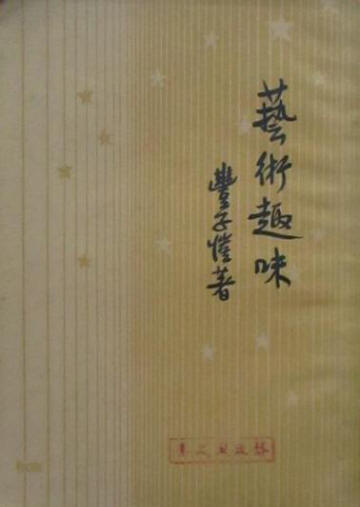 藝術趣味
豐子愷著